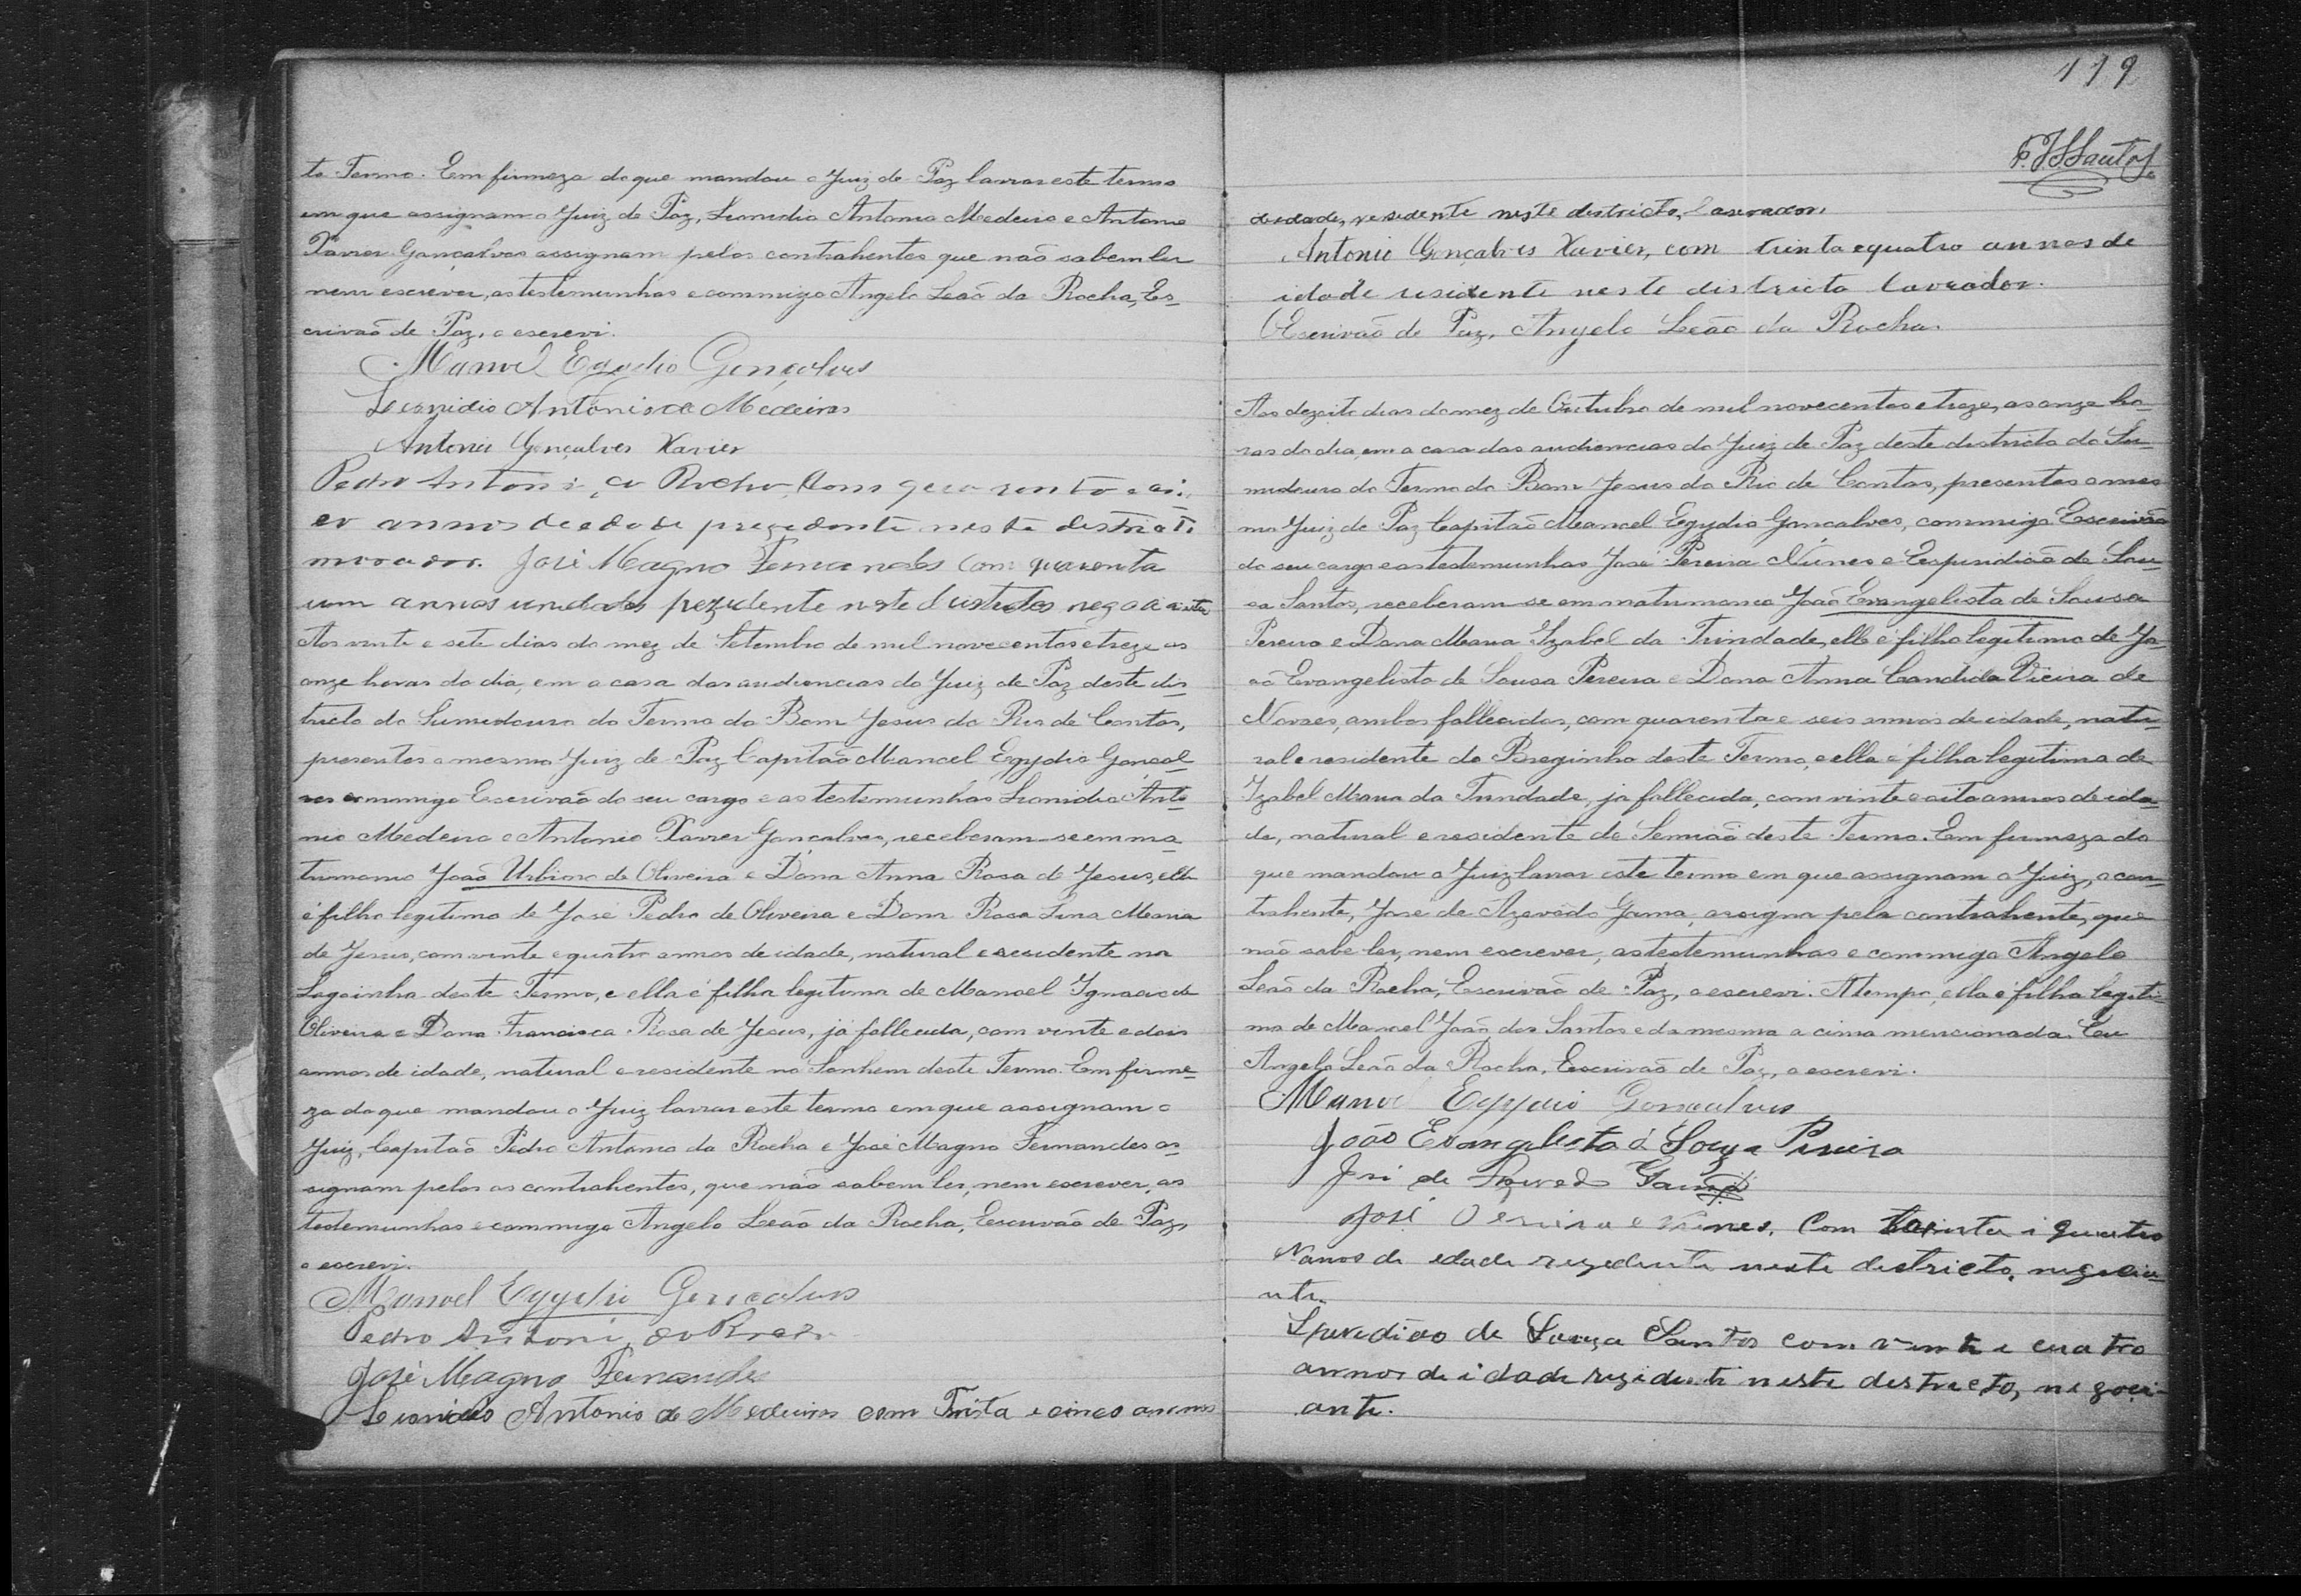 te Termo. Em firmeza do que mandou o Juiz de Paz lavrar este termo
em que assignam o Juiz de Paz, Leonidio Antonio Medeiro e Antonio
Xavier Gonçalves assignam pelos contrahentes que não sabem ler
nem escrever, as testemunhas e commigo Angelo Leão da Rocha, Es-
crivão de Paz, o escrevi.
Manoel Egydio Gonçalves
Leonidio Antonio de Medeiros
Antonio Gonçalves Xavier
Pedro Antonio da Rocha, Com quarenta e cin
co annos de edade prezedente neste destricto
morador. José Magno Fernandes com quarenta
um annos unedades prezudente neste destrito negociante
Aos vinte e sete dias do mez de Setembro de mil novecentos e treze as
onze horas do dia, em a casa das audiencias do Juiz de Paz deste dis-
tricto do Sumidouro do Termo do Bom Jesus do Rio de Contas,
presentes o mesmo Juiz de Paz Capitão Manoel Egydio Gonçal-
ves commigo Escrivão do seu cargo e as testemunhas Leonidio Anto-
nio Medeiro e Antonio Xavier Gonçalves, receberam-se em ma-
trimonio João Urbino de Oliveira e Dona Anna Rosa de Jesus, elle
é filho legitimo de José Pedro de Oliveira e Dona Rosa Lina Maria
de Jesus, com vinte e quatro annos de idade, natural e residente na
Lagoinha deste Termo, e ella é filha legitima de Manoel Ignacio de
Oliveira e Dona Francisca Rosa de Jesus, já fallecida, com vinte e dois
annos de idade, natural e residente no deste Termo. Em firme-
za do que mandou o Juiz lavrar este termo em que assignam o
Juiz, Capitão Pedro Antonio da Rocha e José Magno Fernandes as-
signam pelos os contrahentes, que não sabem ler, nem escrever, as
testemunhas e commigo Angelo Leão da Rocha, Escrivão de Paz,
o escrevi.
Manoel Egydio Gonçalves
Pedro Antonio da Rocha
José Magno Fernandes
Leonidio Antonio de Medeiros com Trinta e cinco annos
119
F. J. S. Santos
de idade, residente neste districto, lavrador.
Antonio Gonçalves Xavier, com trinta e quatro annos de
idade residente neste districto lavrador.
O Escrivão de Paz, Angelo Leão da Rocha.
Aos dezoito dias do mez de Outubro de mil novecentos e treze, as onze ho-
ras do dia, em a casa das audiencias do Juiz de Paz deste districto do Su-
midouro do Termo do Bom Jesus do Rio de Contas, presentes o mes-
mo Juiz de Paz Capitão Manoel Egydio Gonçalves, commigo Escrivão
do seu cargo e as testemunhas José Pereira Nunes e Espiridião de Sou-
sa Santos, receberam-se em matrimonio João Evangelista de Sousa
Pereira e Dona Maria Izabel da Trindade, elle é filho legitimo de Jo-
ão Evangelista de Sousa Pereira e Dona Anna Candida Vieira de
Novaes, ambos fallecidos, com quarenta e seis annos de idade, natu-
ral e residente do Breginho deste Termo, e ella é filha legitima de
Izabel Maria da Trindade, já fallecida, com vinte e oito annos de ida-
de, natural e residente de deste Termo. Em firmeza do
que mandou o Juiz lavrar este termo em que assignam o Juiz, o con-
trahente, José de Azevedo Gama, assigna pela contrahente, que
não sabe ler, nem escrever, as testemunhas e commigo Angelo
Leão da Rocha, Escrivão de Paz, o escrevi. A tempo, ella é filha legiti-
ma de Manoel João dos Santos e da mesma a cima mencionada. Eu
Angelo Leão da Rocha, Escrivão de Paz, o escrevi.
Manoel Egydio Gonçalves
João Evangelista d Souza Pereira
José de Azevedo Gama
José Pereira e Nunes. Com trinta i quatro
Nanos de edade rezedente neste destricto, negocia-
nte.
Speredião de Souza Santos com vinte e cuatro
annos de idade rezidente neste destricto, negoci-
ante.